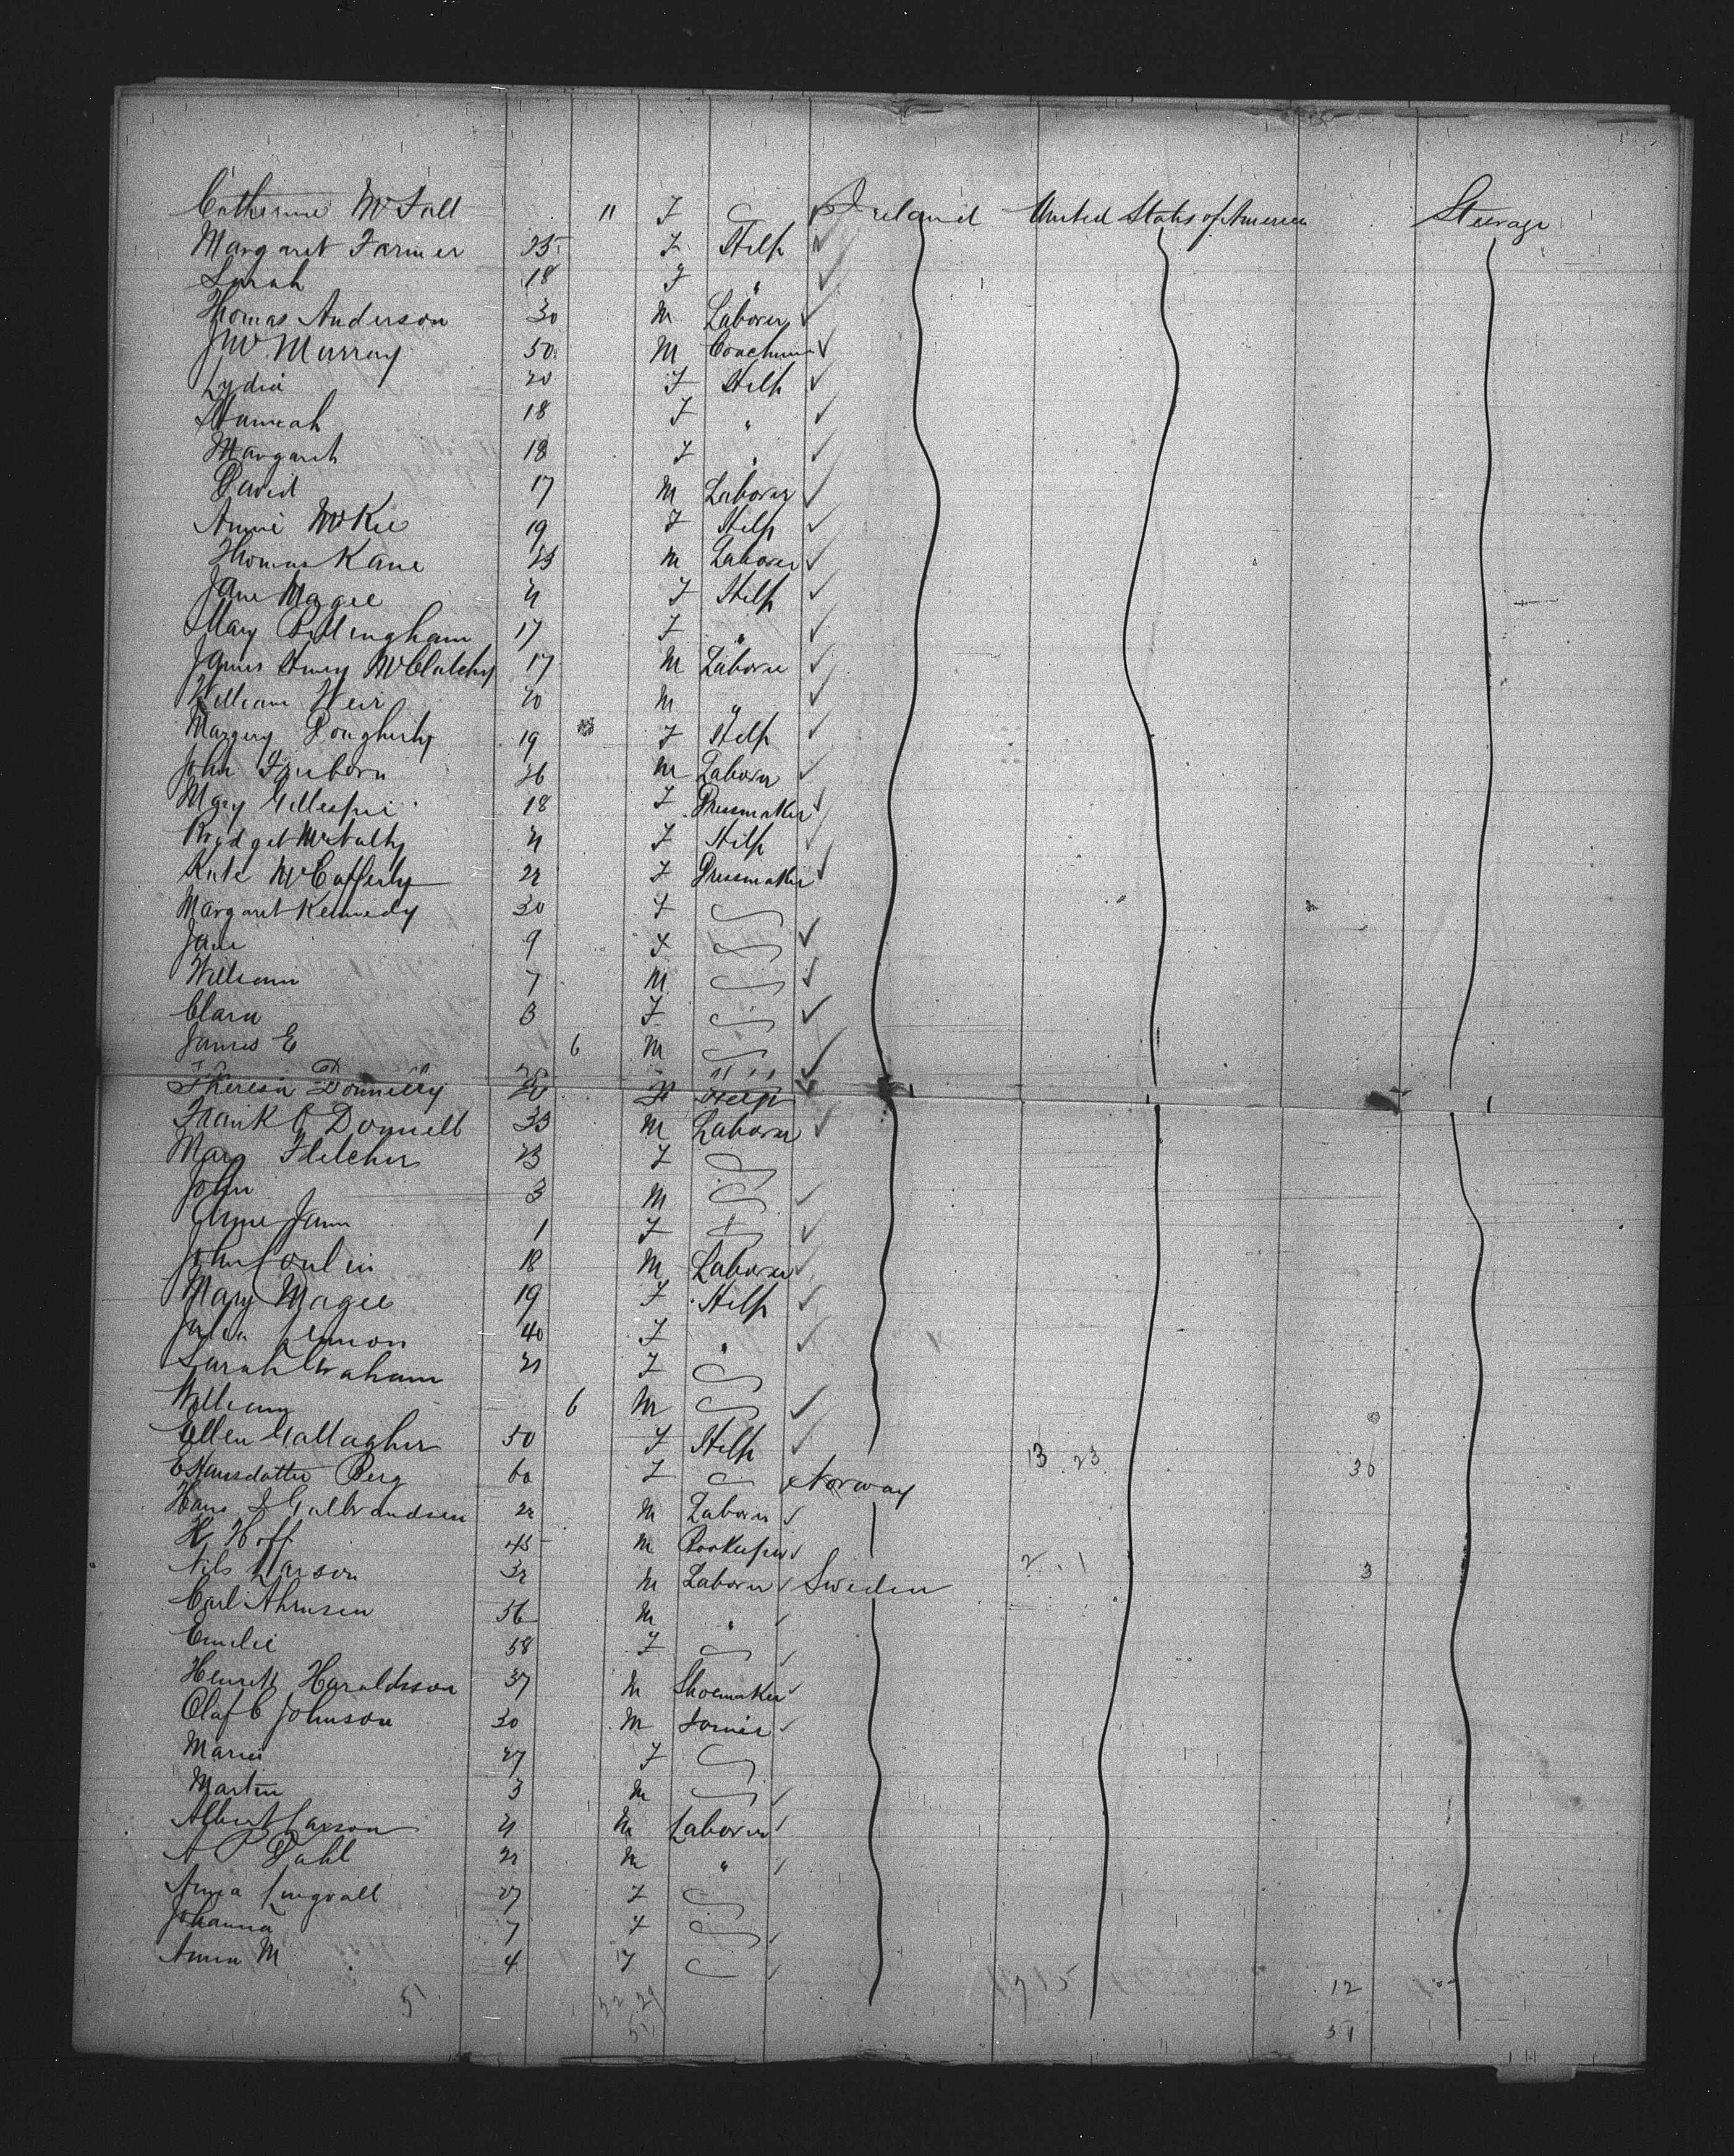 Catherine McFall 11 F Ireland United States of America Steerage
Margaret Farmer 25 F Help
Sarah 18 F "
Thomas Anderson 30 M Laborer
Murray 50 M Coachman
Lydia 20 F Help
Hannah 18 F "
Margaret 18 F "
David 17 M Laborer
Annie McKee 19 F Help
Thomas Kane 23 M Laborer
Jane Magee 21 F Help
Mary Bellingham 17 F "
James Henry McClatchy 17 M Laborer
William Weir 20 M "
Margery Dougherty 19 F Help
John 26 M Laborer
Mary Gillespie 18 F Dressmaker
Bridget McNulty 21 F Help
Kate McCafferty 22 F Dressmaker
Margaret Kennedy 30 F
Jane 9 F
William 7 M
Clara 3 F
James E 6 M
Theresa Donnelly 20 F Help
Frank O Donnell 33 M Laborer
Mary Fletcher 23 F
John 3 M
Anne Jane 1 F
John Conlin 18 M Laborer
Mary Magee 19 F Help
Lemon 40 F "
Sarah Graham 21 F
William 6 M
Ellen Gallagher 50 F Help 13 23 36
E Hansdatter Berg 60 F Norway
Hans J Gulbrandsen 22 M Laborer
H Hoff 45 M Bookeeper 2 1 3
Nils Larson 32 M Laborer Sweden
Carl Ahrnsen 56 M "
Emilie 58 F
Haraldsson 37 M Shoemaker
Olaf C Johnson 30 M Farmer
Maria 27 F
Martin 3 M
Albert Larson 21 M Laborer
A P Dahl 22 M "
Anna Lingvall 27 F
Johanna 7 F
Anna M 4 F
51 22 29 12
51 51